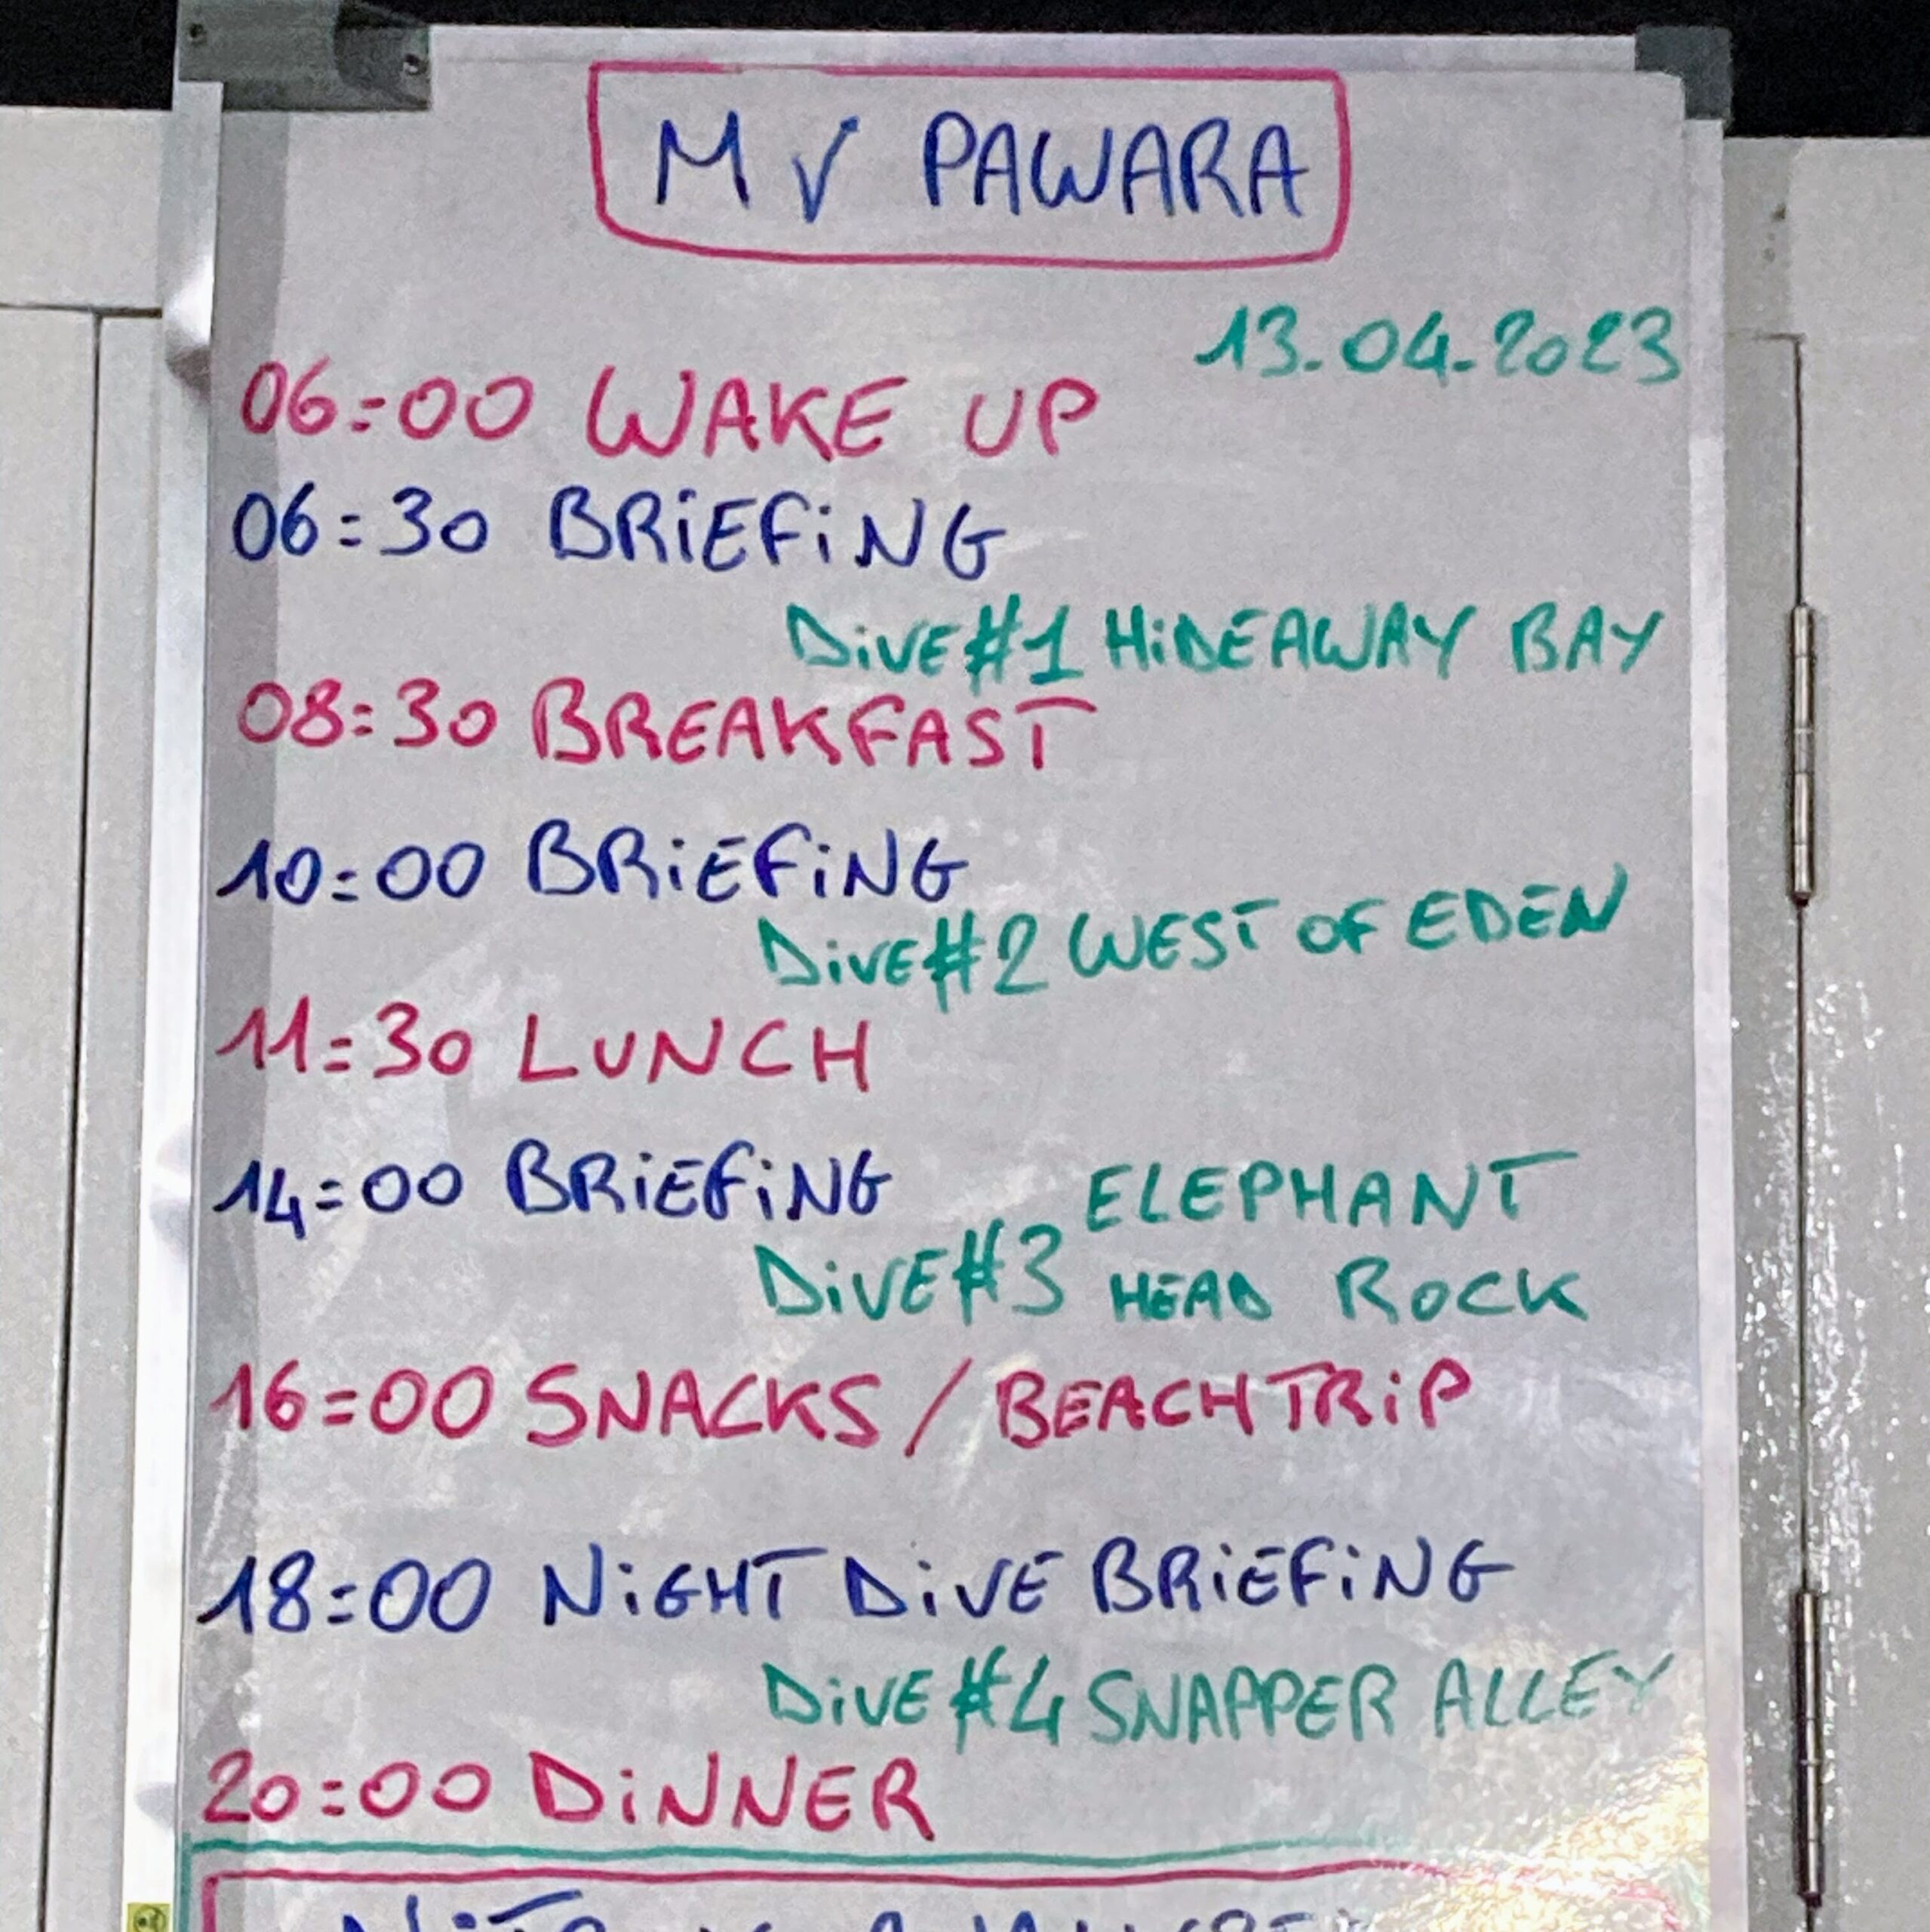 MV PAWARA
13.04.2023
06:00 WAKE UP
06:30 BRiEFiNG
DiVE#1 HiDEAWAY BAY
08:30 BREAKFAST
10:00 BRiEFiNG
DiVE#2 WEST OF EDEN
11:30 LUNCH
14:00 BRiEFiNG
DiVE#3 ELEPHANT
HEAD ROCK
16:00 SNACKS / BEACHTRiP
18:00 NiGHT DiVE BRiEFiNG
DiVE #4 SNAPPER ALLEY
20:00 DiNNER